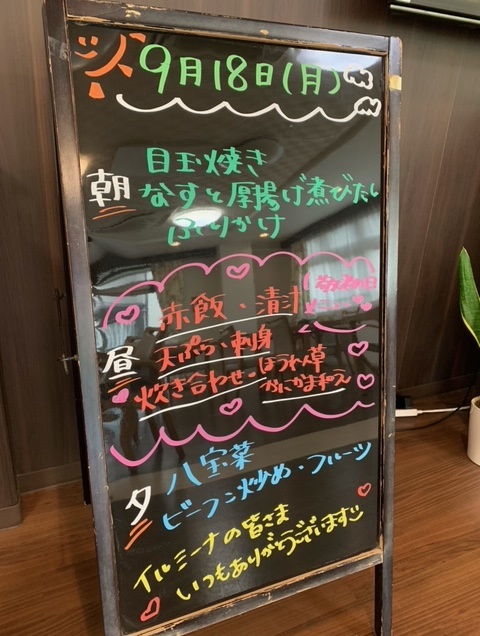 9月18日(月)
朝
目玉焼き
なすと厚揚げ煮びたし
ふりかけ
敬老の日
メニュー
昼
赤飯・清汁
天ぷら・刺身
炊き合わせ・ほうれん草
かにかま和え
夕
八宝菜
ビーフン炒め・フルーツ
イルミーナの皆さま
いつもありがとうございます